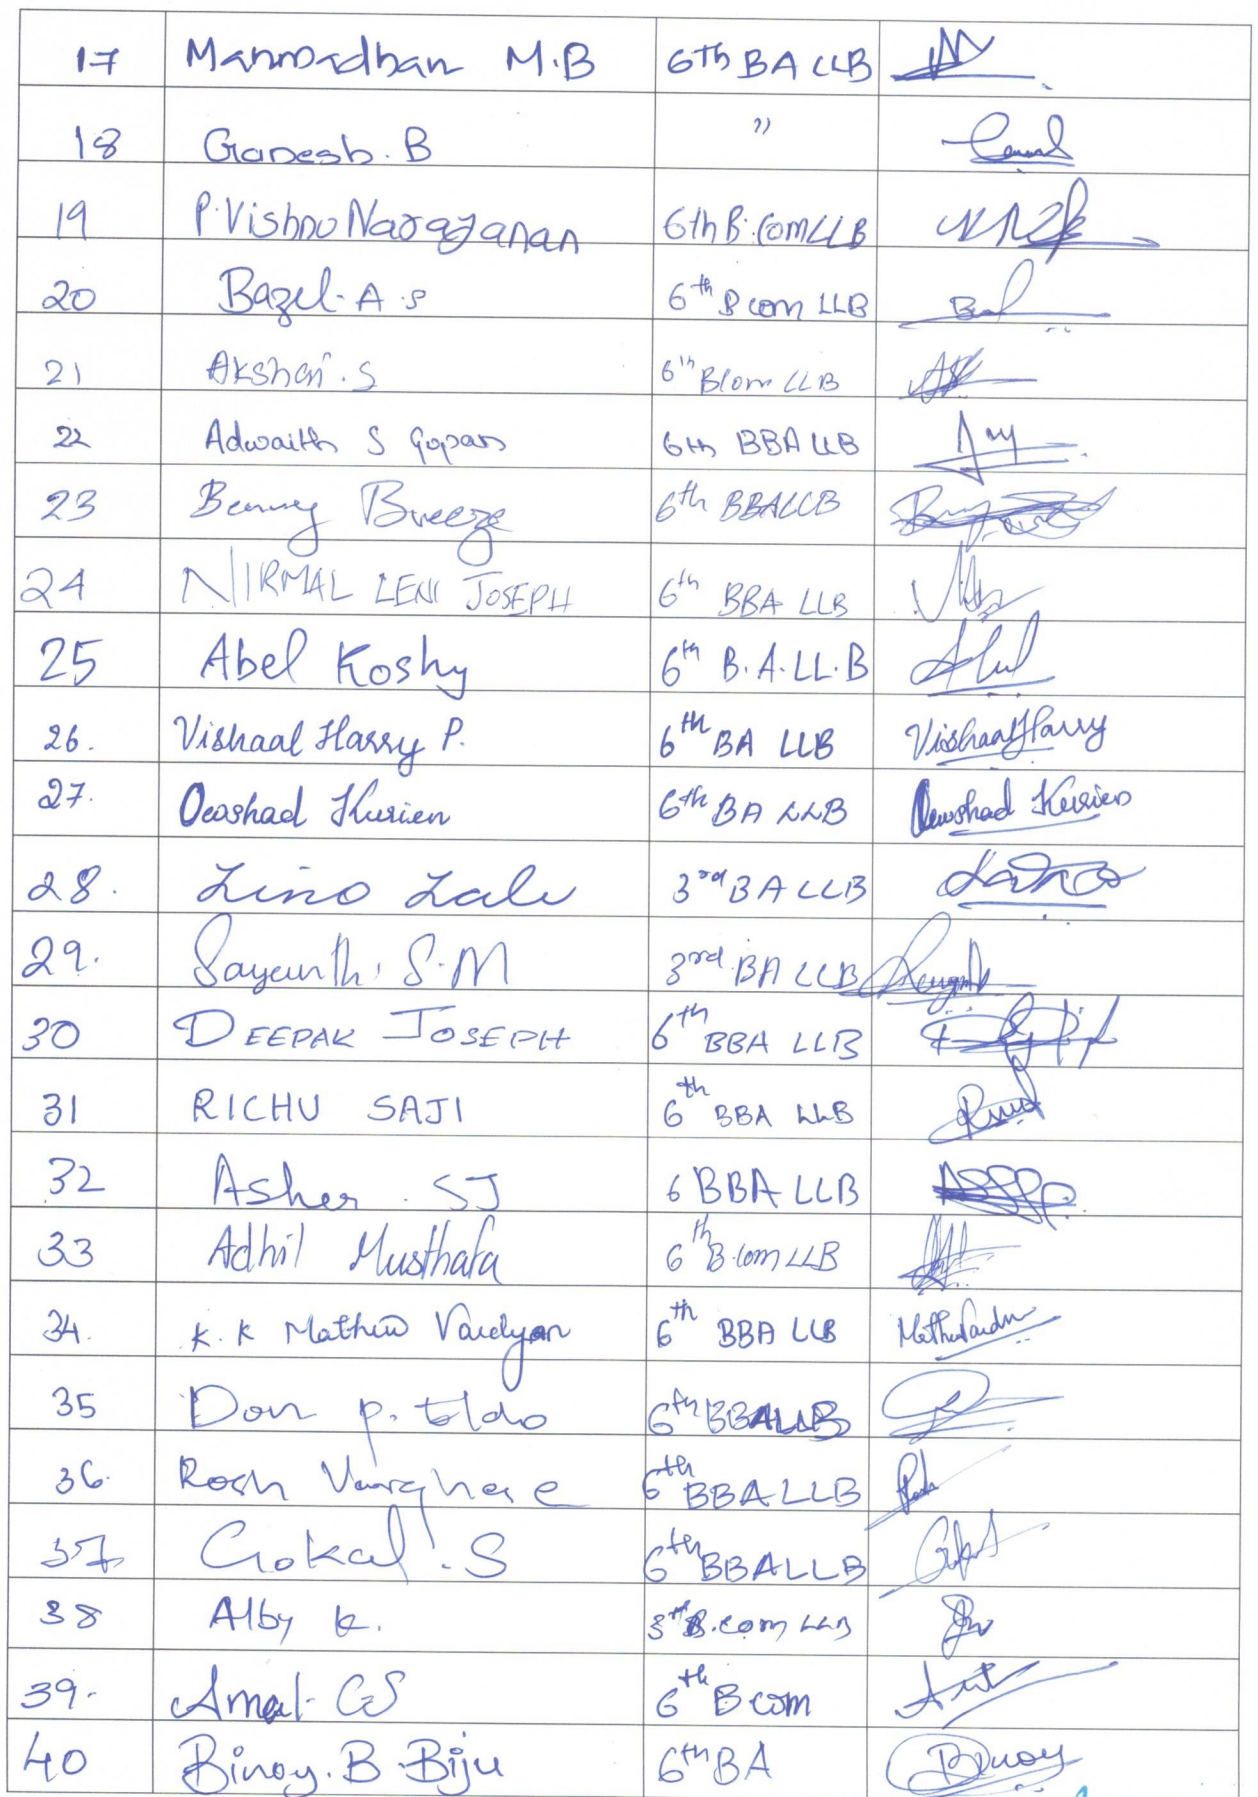 17 Manmadhan M.B 6th BA LLB
18 Ganesh. B "
19 P. Vishnu Narayanan 6th B.Com LLB
20 Bazel. A. S 6th B com LLB
21 Akshai. S 6th Bcom LLB
22 Adwaith S Gopan 6th BBA LLB
23 Benny Breeze 6th BBA LLB
24 NIRMAL LENI JOSEPH 6th BBA LLB
25 Abel Koshy 6th B.A.LL.B
26. Vishaal Harry P. 6th BA LLB Vishaal Harry
27. Kurien 6th BA LLB Kurien
28. Lino Lalu 3rd BA LLB
29. Sayanth. S.M 3rd BA LLB
30 DEEPAK JOSEPH 6th BBA LLB
31 RICHU SAJI 6th BBA LLB
32 Asher SJ 6 BBA LLB
33 Adhil Musthafa 6th B.Com LLB
34. K. K Mathew Vaidyan 6th BBA LLB
35 Don P. Eldo 6th BBALLB
36. Rosh Varghese 6th BBA LLB
37. Gokul. S 6th BBALLB
38 Alby K. 3rd B.com LLB
39. Amal GS 6th B com
40 Binoy. B. Biju 6th BA Binoy